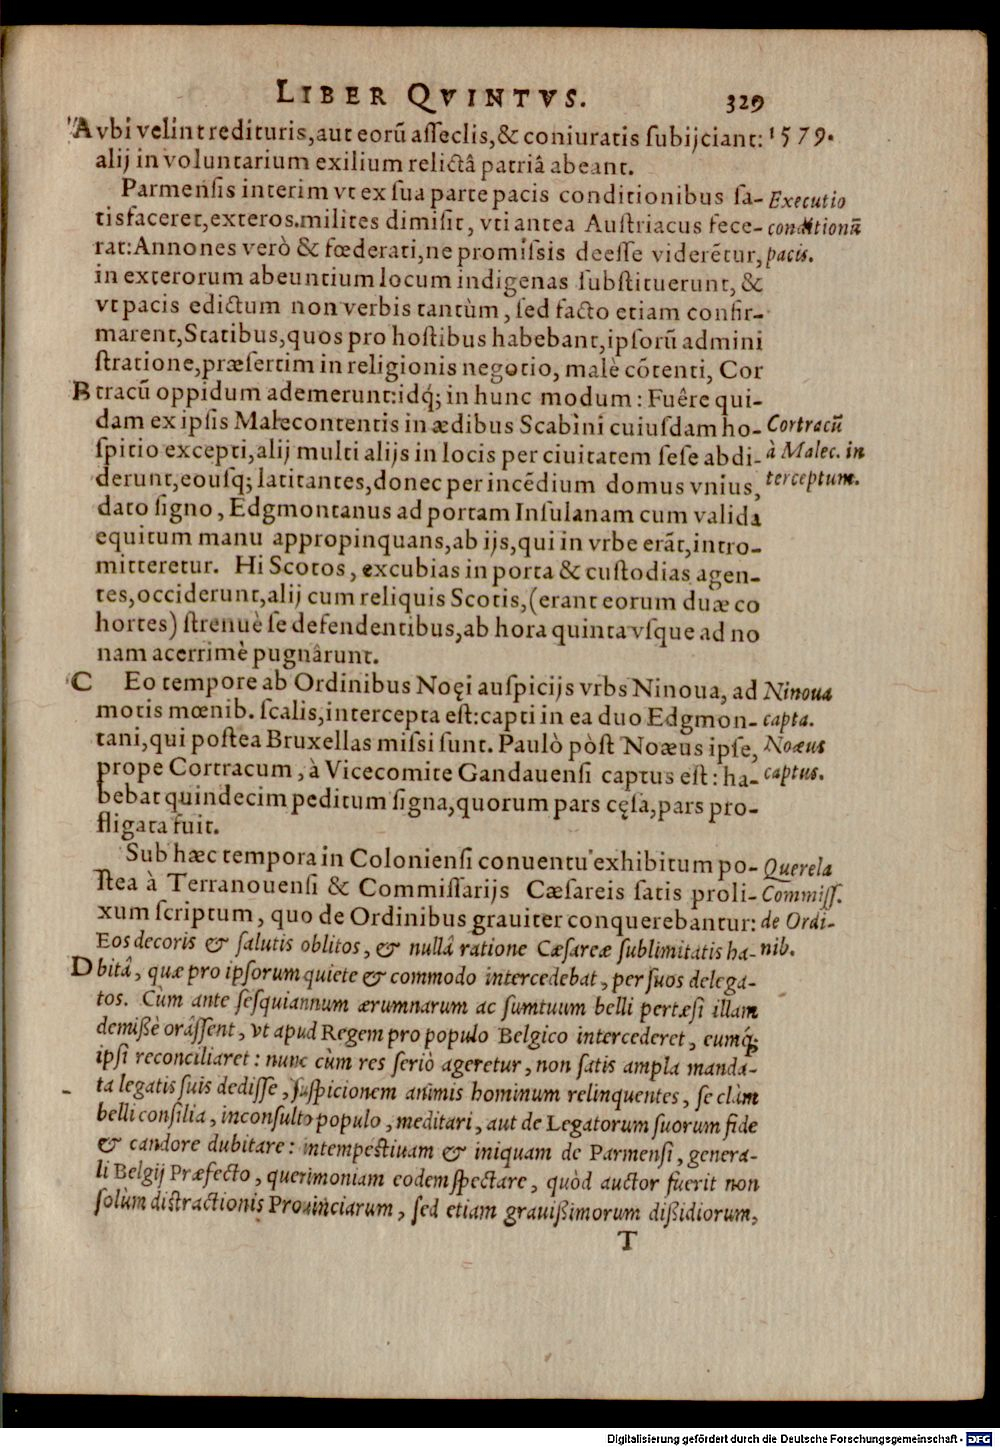 LIBER QVINTVS. 329
A vbi velint redituris, aut eorũ asseclis, & coniuratis subijciant: 1579.
alij in voluntarium exilium relictâ patriâ abeant.
Parmensis interim vt ex sua parte pacis conditionibus sa- Executio
tisfaceret, exteros milites dimisit, vti antea Austriacus fece- conditionũ
rat: Annones verò & fœderati, ne promissis deesse viderẽtur, pacis.
in exterorum abeuntium locum indigenas substituerunt, &
vt pacis edictum non verbis tantùm, sed facto etiam confir-
marent, Statibus, quos pro hostibus habebant, ipsorũ admini
stratione, præsertim in religionis negotio, malè cõtenti, Cor
B tracũ oppidum ademerunt: idq́; in hunc modum: Fuêre qui-
dam ex ipsis Malecontentis in ædibus Scabini cuiusdam ho- Cortracũ
spitio excepti, alij multi alijs in locis per ciuitatem sese abdi- à Malec. in
derunt, eousq; latitantes, donec per incẽdium domus vnius, terceptum.
dato signo, Edgmontanus ad portam Insulanam cum valida
equitum manu appropinquans, ab ijs, qui in vrbe erãt, intro-
mitteretur. Hi Scotos, excubias in porta & custodias agen-
tes, occiderunt, alij cum reliquis Scotis, (erant eorum duæ co
hortes) strenuè se defendentibus, ab hora quinta vsque ad no
nam acerrimè pugnârunt.
C Eo tempore ab Ordinibus Noęi auspicijs vrbs Ninoua, ad Ninoua
motis mœnib. scalis, intercepta est: capti in ea duo Edgmon- capta.
tani, qui postea Bruxellas missi sunt. Paulò pòst Noæus ipse, Noæus
prope Cortracum, à Vicecomite Gandauensi captus est: ha- captus.
bebat quindecim peditum signa, quorum pars cęsa, pars pro-
fligata fuit.
Sub hæc tempora in Coloniensi conuentu exhibitum po- Querela
stea à Terranouensi & Commissarijs Cæsareis satis proli- Commiss.
xum scriptum, quo de Ordinibus grauiter conquerebantur: de Ordi-
Eos decoris & salutis oblitos, & nullâ ratione Cæsareæ sublimitatis ha- nib.
D bitâ, quæ pro ipsorum quiete & commodo intercedebat, per suos delega-
tos. Cùm ante sesquiannum ærumnarum ac sumtuum belli pertæsi illam
demißè orâssent, vt apud Regem pro populo Belgico intercederet, eumq́;
ipsi reconciliaret: nunc cùm res seriò ageretur, non satis ampla manda-
ta legatis suis dedisse, suspicionem animis hominum relinquentes, se clàm
belli consilia, inconsulto populo, meditari, aut de Legatorum suorum fide
& candore dubitare: intempestiuam & iniquam de Parmensi, genera-
li Belgij Præfecto, querimoniam eodem spectare, quòd auctor fuerit non
solùm distractionis Prouinciarum, sed etiam grauißimorum dißidiorum,
T
Digitalisierung gefördert durch die Deutsche Forschungsgemeinschaft - DFG